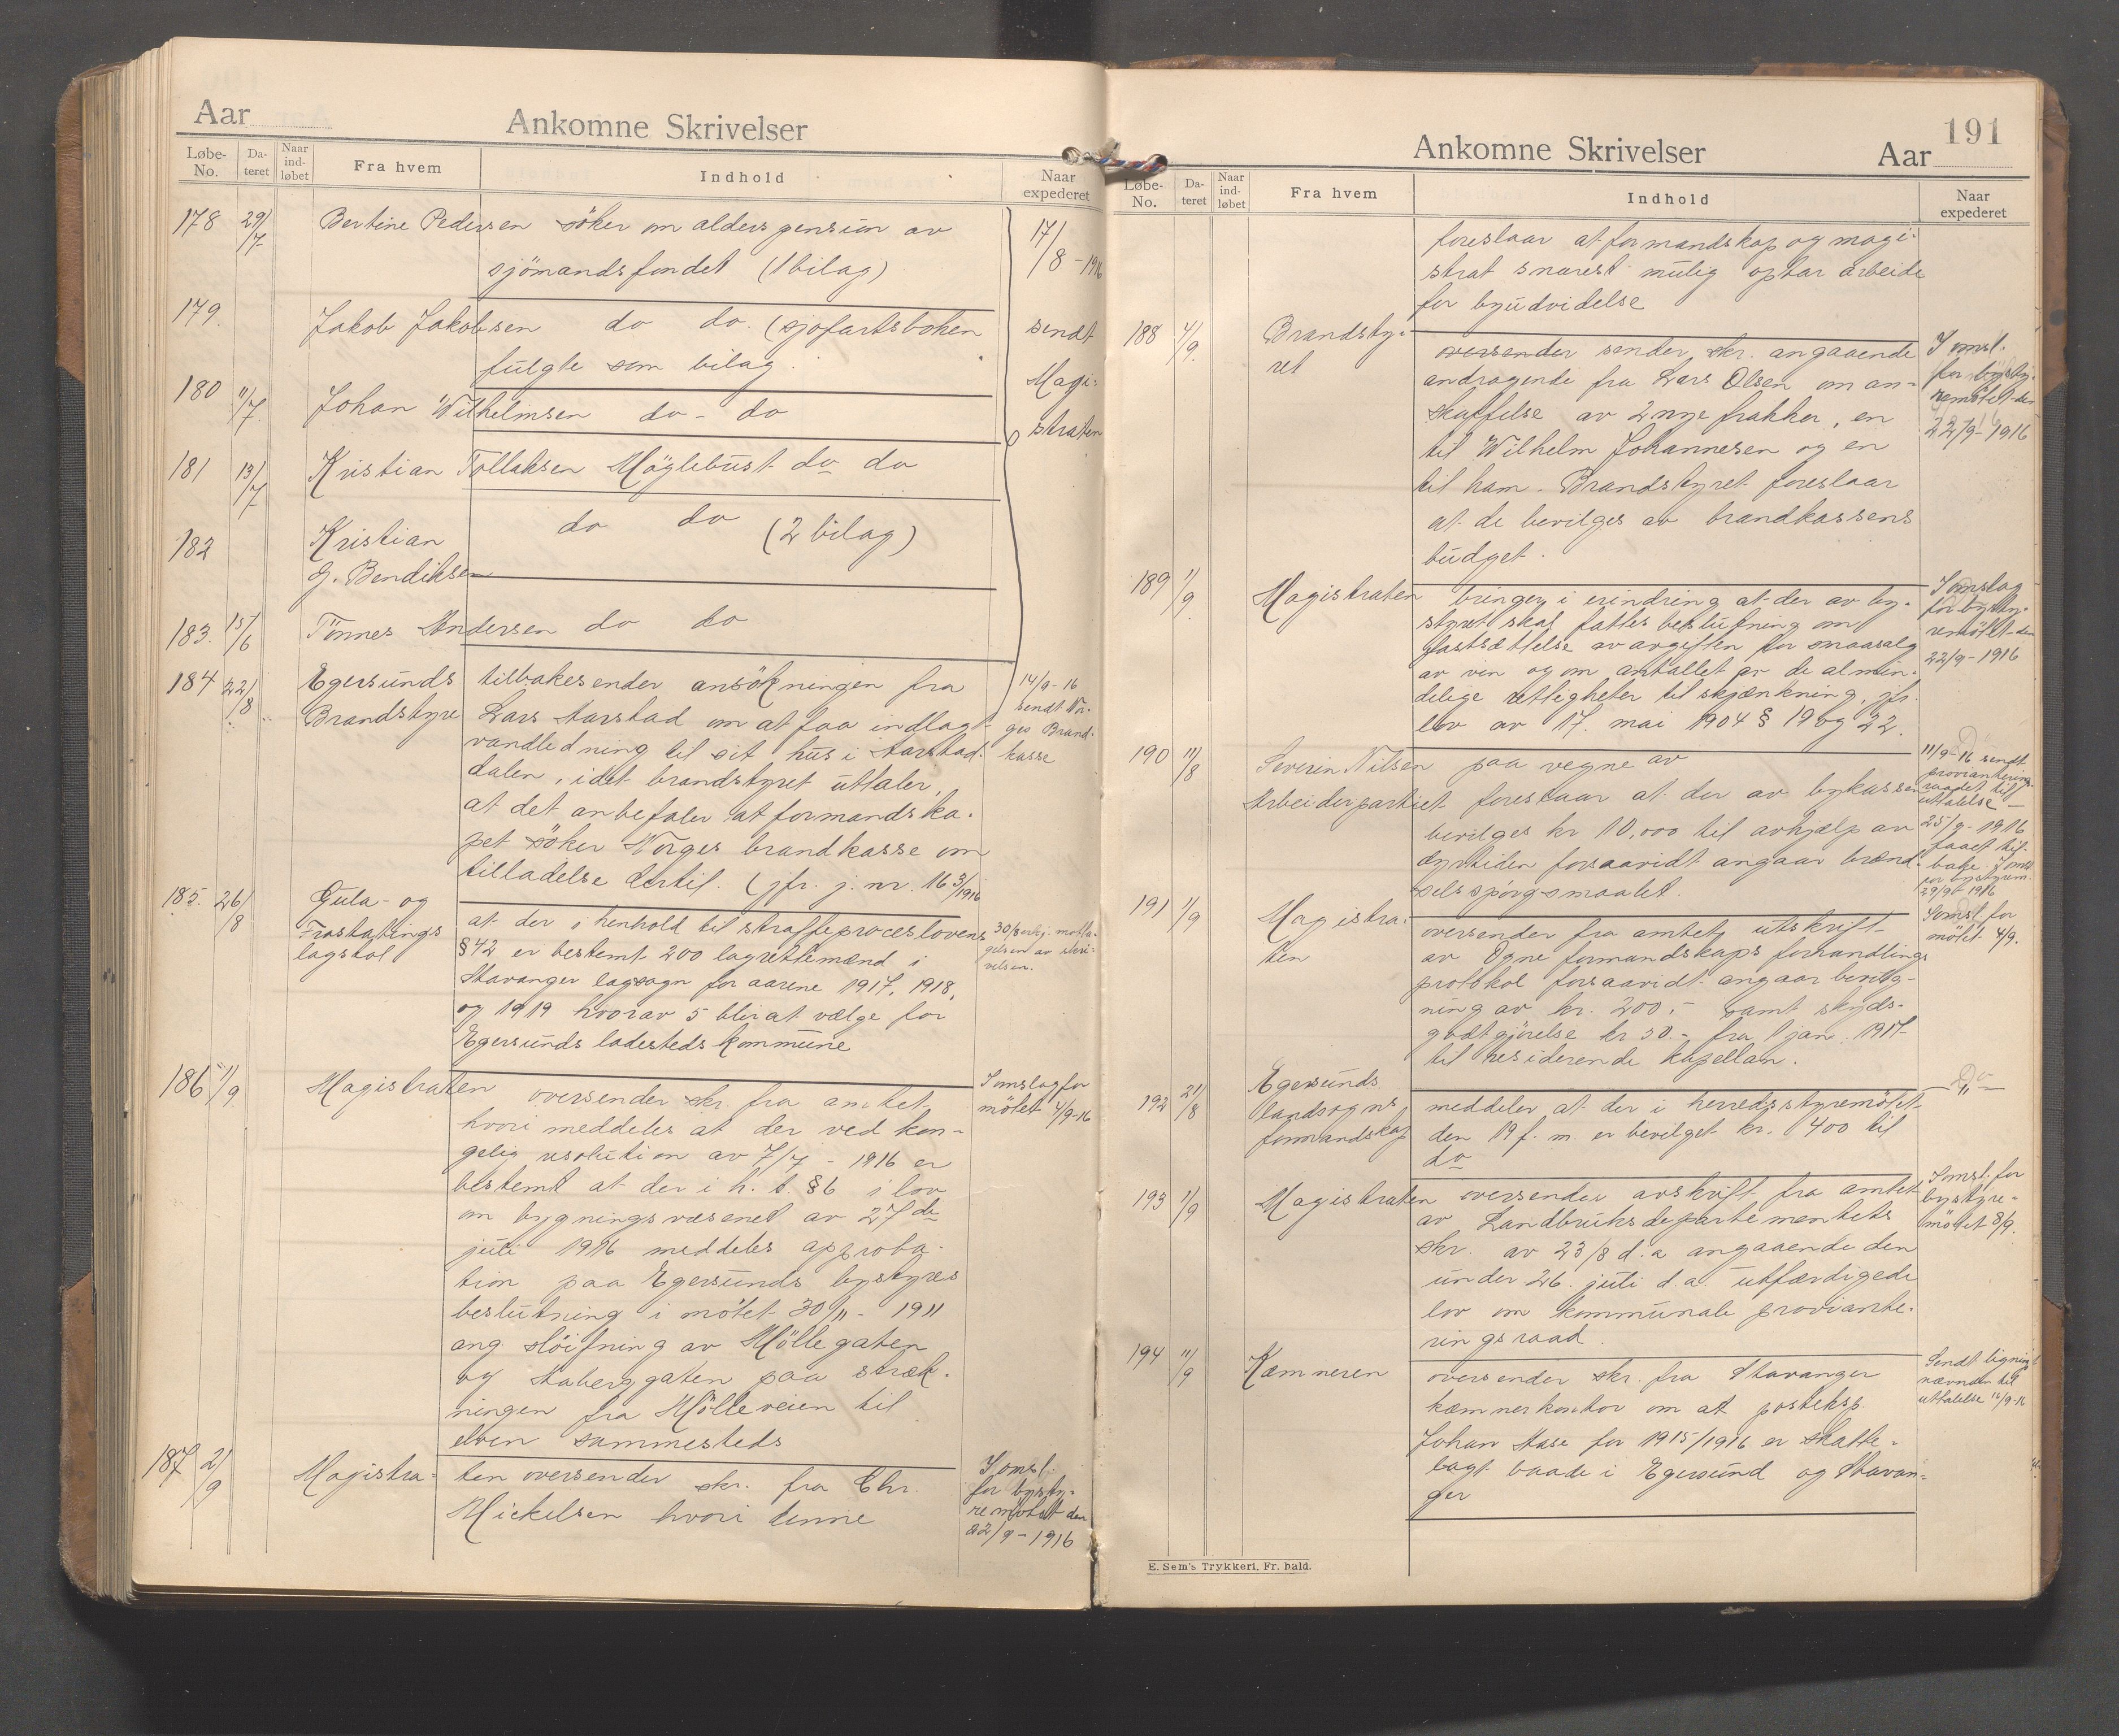 Aar
Ankomne Skrivelser
Løbe-No.
Da-teret
Naar ind-løbet
Fra hvem
Indhold
Naar expederet
178 29/7 Bertine Pedersen söker om alderspension av
sjömandsfondet (1 bilag)
17/8 - 1916
179. Jakob Jakobsen do do. (sjøfartsboken
fulgte som bilag.
sendt
Magi-
straten
180 11/7. Johan Wilhelmsen do - do
181 13/7 Kristian Tollaksen Möglebust do do
182 Kristian
G. Bendiksen
do do (2 bilag)
183. 15/6 Tönnes Andersen do do
184 22/8 Egersunds
Brandstyre
tilbakesender ansökningen fra
Lars Aarstad om at faa indlagt
vandledning til sit hus i Aarstad-
dalen, idet brandstyret uttaler,
at det anbefaler at formandska-
pet söker Norges brandkasse om
tilladelse dertil. (jfr. j. nr. 163/1916
14/9 - 16
sendt Nor-
ges Brand-
kasse
185. 26/8 Gula- og
Frostatings
lagstol
at der i henhold til straffeproceslovens
§ 42 er bestemt 200 lagrettemænd i
Stavanger lagsogn for aarene 1917, 1918,
og 1919 hvorav 5 blir at vælge for
Egersunds ladesteds kommune
30/8 erkj. motta-
gelsen av skri-
velsen.
186 1/9 Magistraten oversender skr. fra amtet
hvori meddeles at der ved kon-
gelig resolution av 7/7 - 1916 er
bestemt at der i h. t. § 6 i lov
om bygningsvæsenet av 27de
juli 1916 meddeles approba-
tion paa Egersunds bystyres
beslutning i mötet 30/11 - 1911
ang slöifning av Möllegaten
og Aaberggaten paa stræk-
ningen fra Mölleveien til
elven sammesteds
I omslag for
mötet 4/9-16
187 2/9 Magistra-
ten oversender skr. fra Chr.
Mickelsen hvori denne
I omsl.
for bysty-
remötet den
22/9 - 1916
191
Ankomne Skrivelser
Aar
Løbe-No.
Da-teret
Naar ind-løbet
Fra hvem
Indhold
Naar expederet
foreslaar at formandskap og magi-
strat snarest mulig optar arbeide
for byudvidelse
188 4/9. Brandsty-
ret
oversender sender skr. angaaende
andragende fra Lars Olsen om an-
skaffelse av 2 nye frakker, en
til Wilhelm Johannesen og en
til ham. Brandstyret foreslaar
at de bevilges av brandkassens
budget.
I omsl.
for bysty-
remötet den
22/9 - 1916
189 11/9 Magistraten bringer i erindring at der av by-
styret skal fattes beslutning om
fastsættelse av avgiften for smaasalg
av vin og om antallet av de almin-
delige rettigheter til skjænkning, jfr.
lov av 17. mai 1904 § 19 og 22.
I omslag
for bysty-
remötet den
22/9 - 1916
190 11/8 Severin Nilsen paa vegne av
Arbeiderpartiet foreslaar at der av bykassen
bevilges kr 10,000 til avhjælp av
dyrtiden forsaavidt angaar brænd-
selsspörgsmaalet.
11/9 - 16 sendt
provianterings-
raadet til
uttalelse -
25/9 - 1916
faaet til-
bake. I omsl
for bystyrem.
29/9 - 1916
191 1/9 Magistra-
ten
oversender fra amtet utskrift
av Ogne formandskaps forhandlings
protokol forsaavidt angaar bevilg-
ning av kr. 200.- samt skyds-
godtgjörelse kr 50.- fra 1 jan. 1917
til residerende kapellan.
I omsl. for
mötet 4/9.
192 21/8 Egersunds
landsogns
formandskap
meddeler at der i herredsstyremötet
den 19 f. m. er bevilget kr. 400 til
do
193 11/9 Magistraten oversender avskrift fra amtet
av Landbruksdepartementets
skr. av 23/8 d.a angaaende den
under 26. juli d.a. utfærdigede
lov om kommunale proviante-
ringsraad.
I omsl. for
bystyre-
mötet 8/9.
194 11/9 Kæmneren
oversender skr. fra Stavanger
kæmnerkontor om at posteksp.
Johan Aase for 1915/1916 er skatte-
lagt baade i Egersund og Stavan-
ger
Sendt ligning
nævnden til
uttalelse
E. Sem's Trykkeri, Fr. hald.